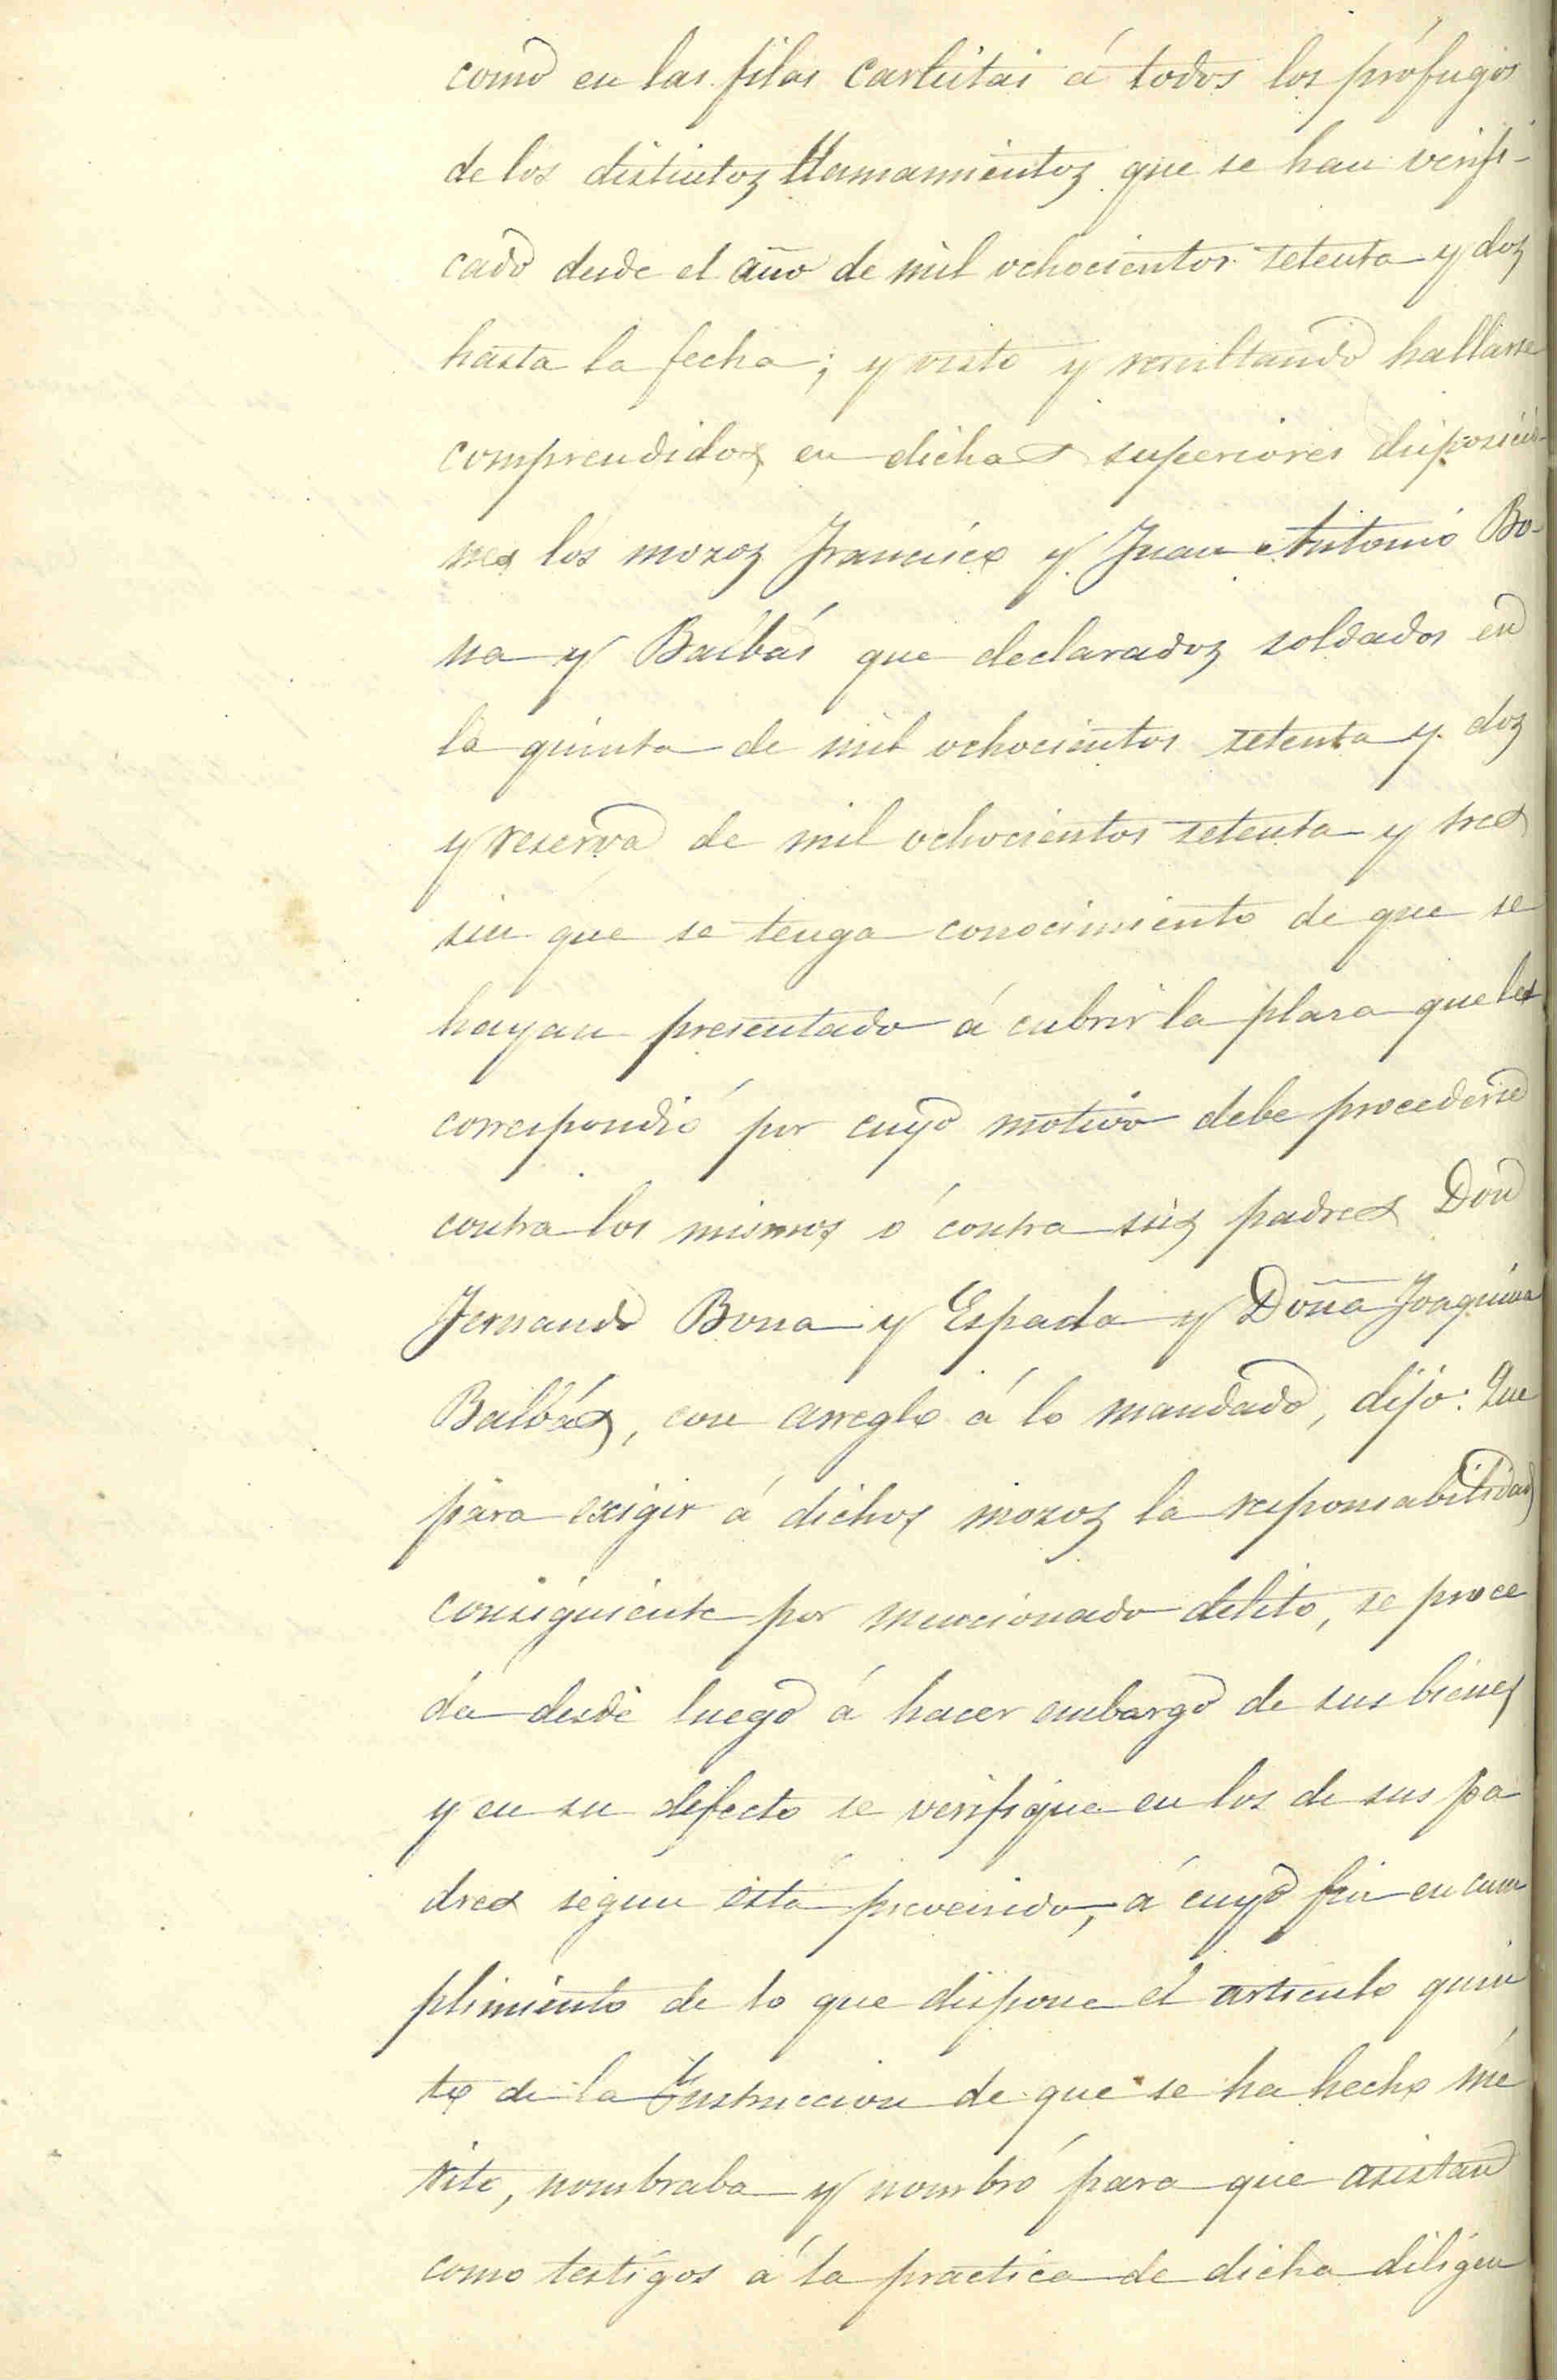 como en las filas carlistas á todos los prófugos
de los distintos llamamientos que se han verifi-
cado desde el año de mil ochocientos setenta y dos
hasta la fecha; y visto y resultando hallarse
comprendidos en dichas superiores disposicio-
nes los mozos Francisco y Juan Antonio Bo-
na y Balbás que declarados soldados en
la quinta de mil ochocientos setenta y dos
y reserva de mil ochocientos setenta y tres
sin que se tenga conocimiento de que se
hayan presentado á cubrir la plaza que les
correspondió por cuyo motivo debe procederse
contra los mismos ó contra sus padres Don
Fernando Bona y Espada y Doña Joaquina
Balbás, con arreglo á lo mandado, dijo: Que
para exigir á dichos mozos la responsabilidad
consiguiente por mencionado delito, se proce
da desde luego á hacer embargo de sus bienes
y en su defecto se verifique en los de sus pa
dres segun está prevenido, á cuyo fin en cum
plimiento de lo que dispone el articulo quin
to de la Instruccion de que se ha hecho mé
rito, nombraba y nombró para que asistan
como testigos á la practica de dicha diligen